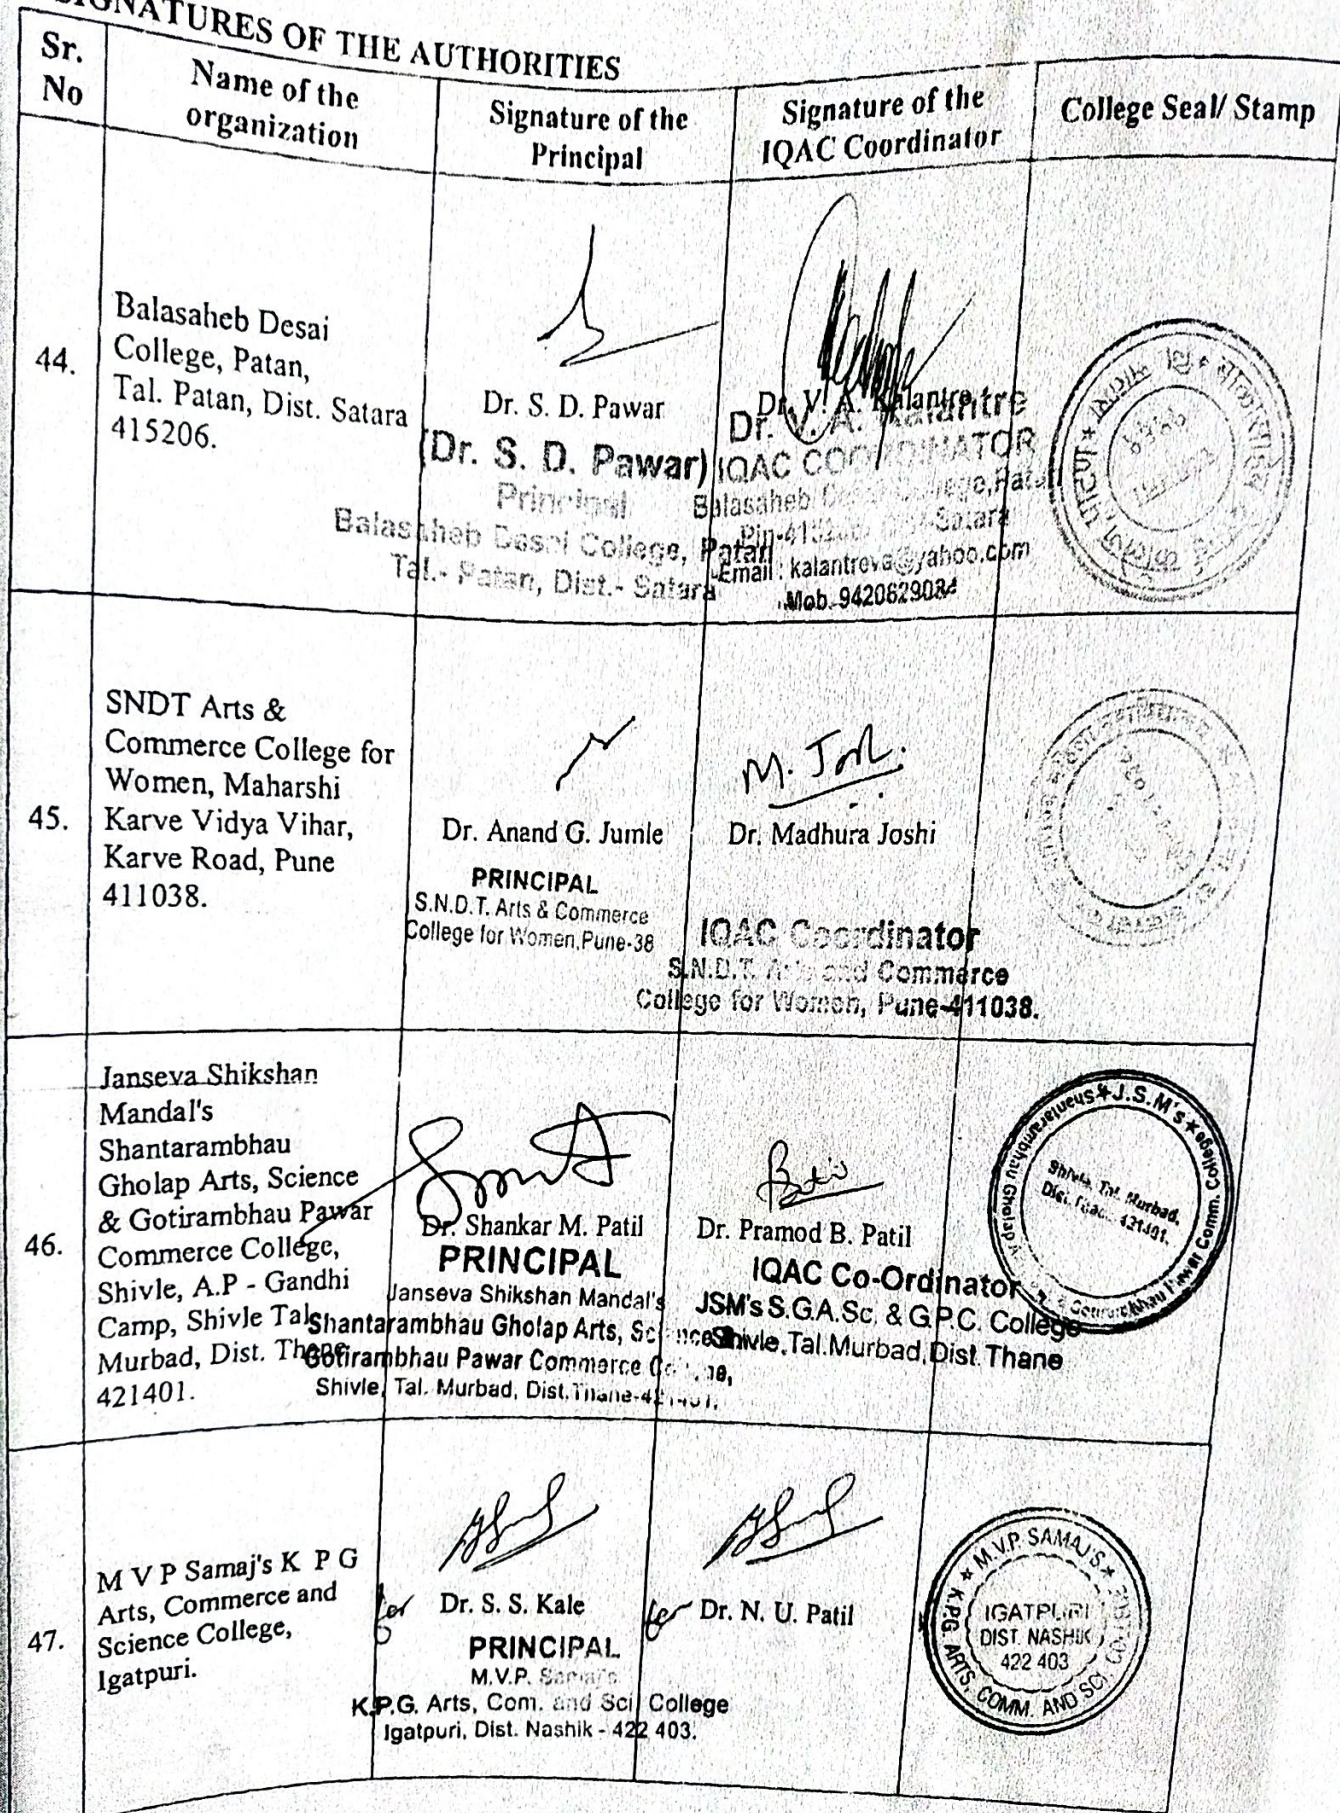 SIGNATURES OF THE AUTHORITIES
Sr.
No
Name of the
organization
Signature of the
Principal
Signature of the
IQAC Coordinator
College Seal/ Stamp
44.
Balasaheb Desai
College, Patan,
Tal. Patan, Dist. Satara
415206.
Dr. S. D. Pawar
(Dr. S. D. Pawar)
Principal
Balasaheb Desai College, Patan
Tal.- Patan, Dist.- Satara
Dr. V. A. Kalantre
Dr. V. A. Kalantre
IQAC COORDINATOR
Balasaheb Desai College, Patan
Satara
Email : kalantreva@yahoo.com
Mob.
45.
SNDT Arts &
Commerce College for
Women, Maharshi
Karve Vidya Vihar,
Karve Road, Pune
411038.
Dr. Anand G. Jumle
PRINCIPAL
S.N.D.T. Arts & Commerce
College for Women, Pune-38
M. Joshi
Dr. Madhura Joshi
IQAC Coordinator
S.N.D.T. Arts and Commerce
College for Women, Pune-411038.
46.
Janseva Shikshan
Mandal's
Shantarambhau
Gholap Arts, Science
& Gotirambhau Pawar
Commerce College,
Shivle, A.P - Gandhi
Camp, Shivle Tal
Murbad, Dist. Thane
421401.
Dr. Shankar M. Patil
PRINCIPAL
Janseva Shikshan Mandal's
Shantarambhau Gholap Arts, Science
Gotirambhau Pawar Commerce College,
Shivle, Tal. Murbad, Dist. Thane-421401.
Dr. Pramod B. Patil
IQAC Co-Ordinator
JSM's S.G.A.Sc. & G.P.C. College
Shivle, Tal. Murbad, Dist. Thane
J.S.M's
Shantarambhau Gholap
& Gotirambhau Pawar Comm. College
Shivle, Tal. Murbad,
Dist. Thane 421401.
47.
M V P Samaj's K P G
Arts, Commerce and
Science College,
Igatpuri.
for Dr. S. S. Kale
PRINCIPAL
M.V.P. Samaj's
K.P.G. Arts, Com. and Sci. College
Igatpuri, Dist. Nashik - 422 403.
for Dr. N. U. Patil
M.V.P. SAMAJ'S
K.P.G. ARTS, COMM. AND SCI.
IGATPURI
DIST. NASHIK
422 403